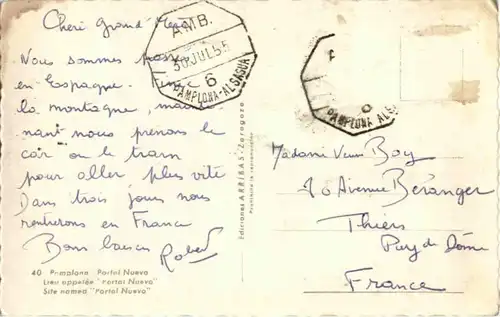 Cheri grand'
Nous sommes passé
en Espagne. Finie
la montagne, mainte
nant nous prenons le
car ou le train
pour aller plus vite
Dans trois jours nous
rentrerons en France
Bons baisers
Robert
40 Pamplona Portal Nuevo
Lieu appelée "Portal Nuevo"
Site named "Portal Nuevo"
AMB.
30 JUL 55
6
PAMPLONA-ALSASUA
Ediciones ARRIBAS-Zaragoza
PAMPLONA ALSA
Madame Veuve Boy
Avenue Béranger
Thiers
Puy de Dôme
France